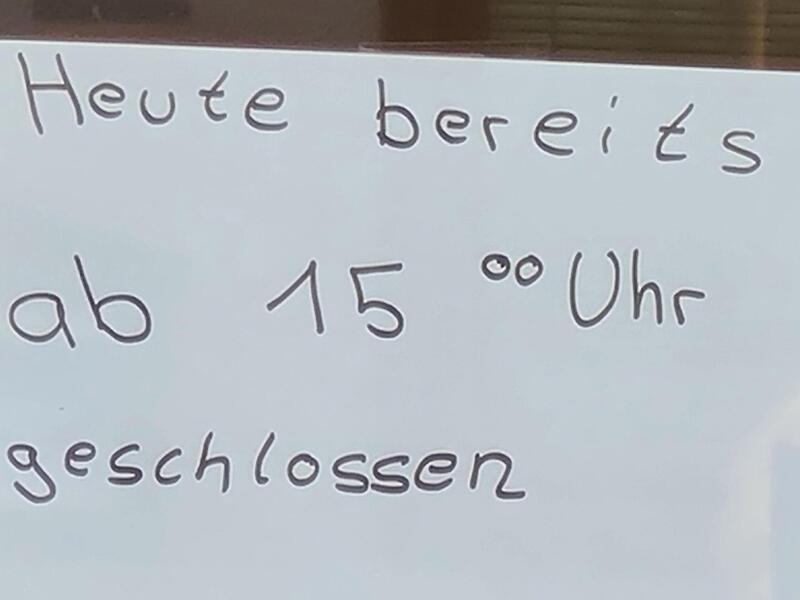 Heute bereits
ab 15 ⁰⁰ Uhr
geschlossen